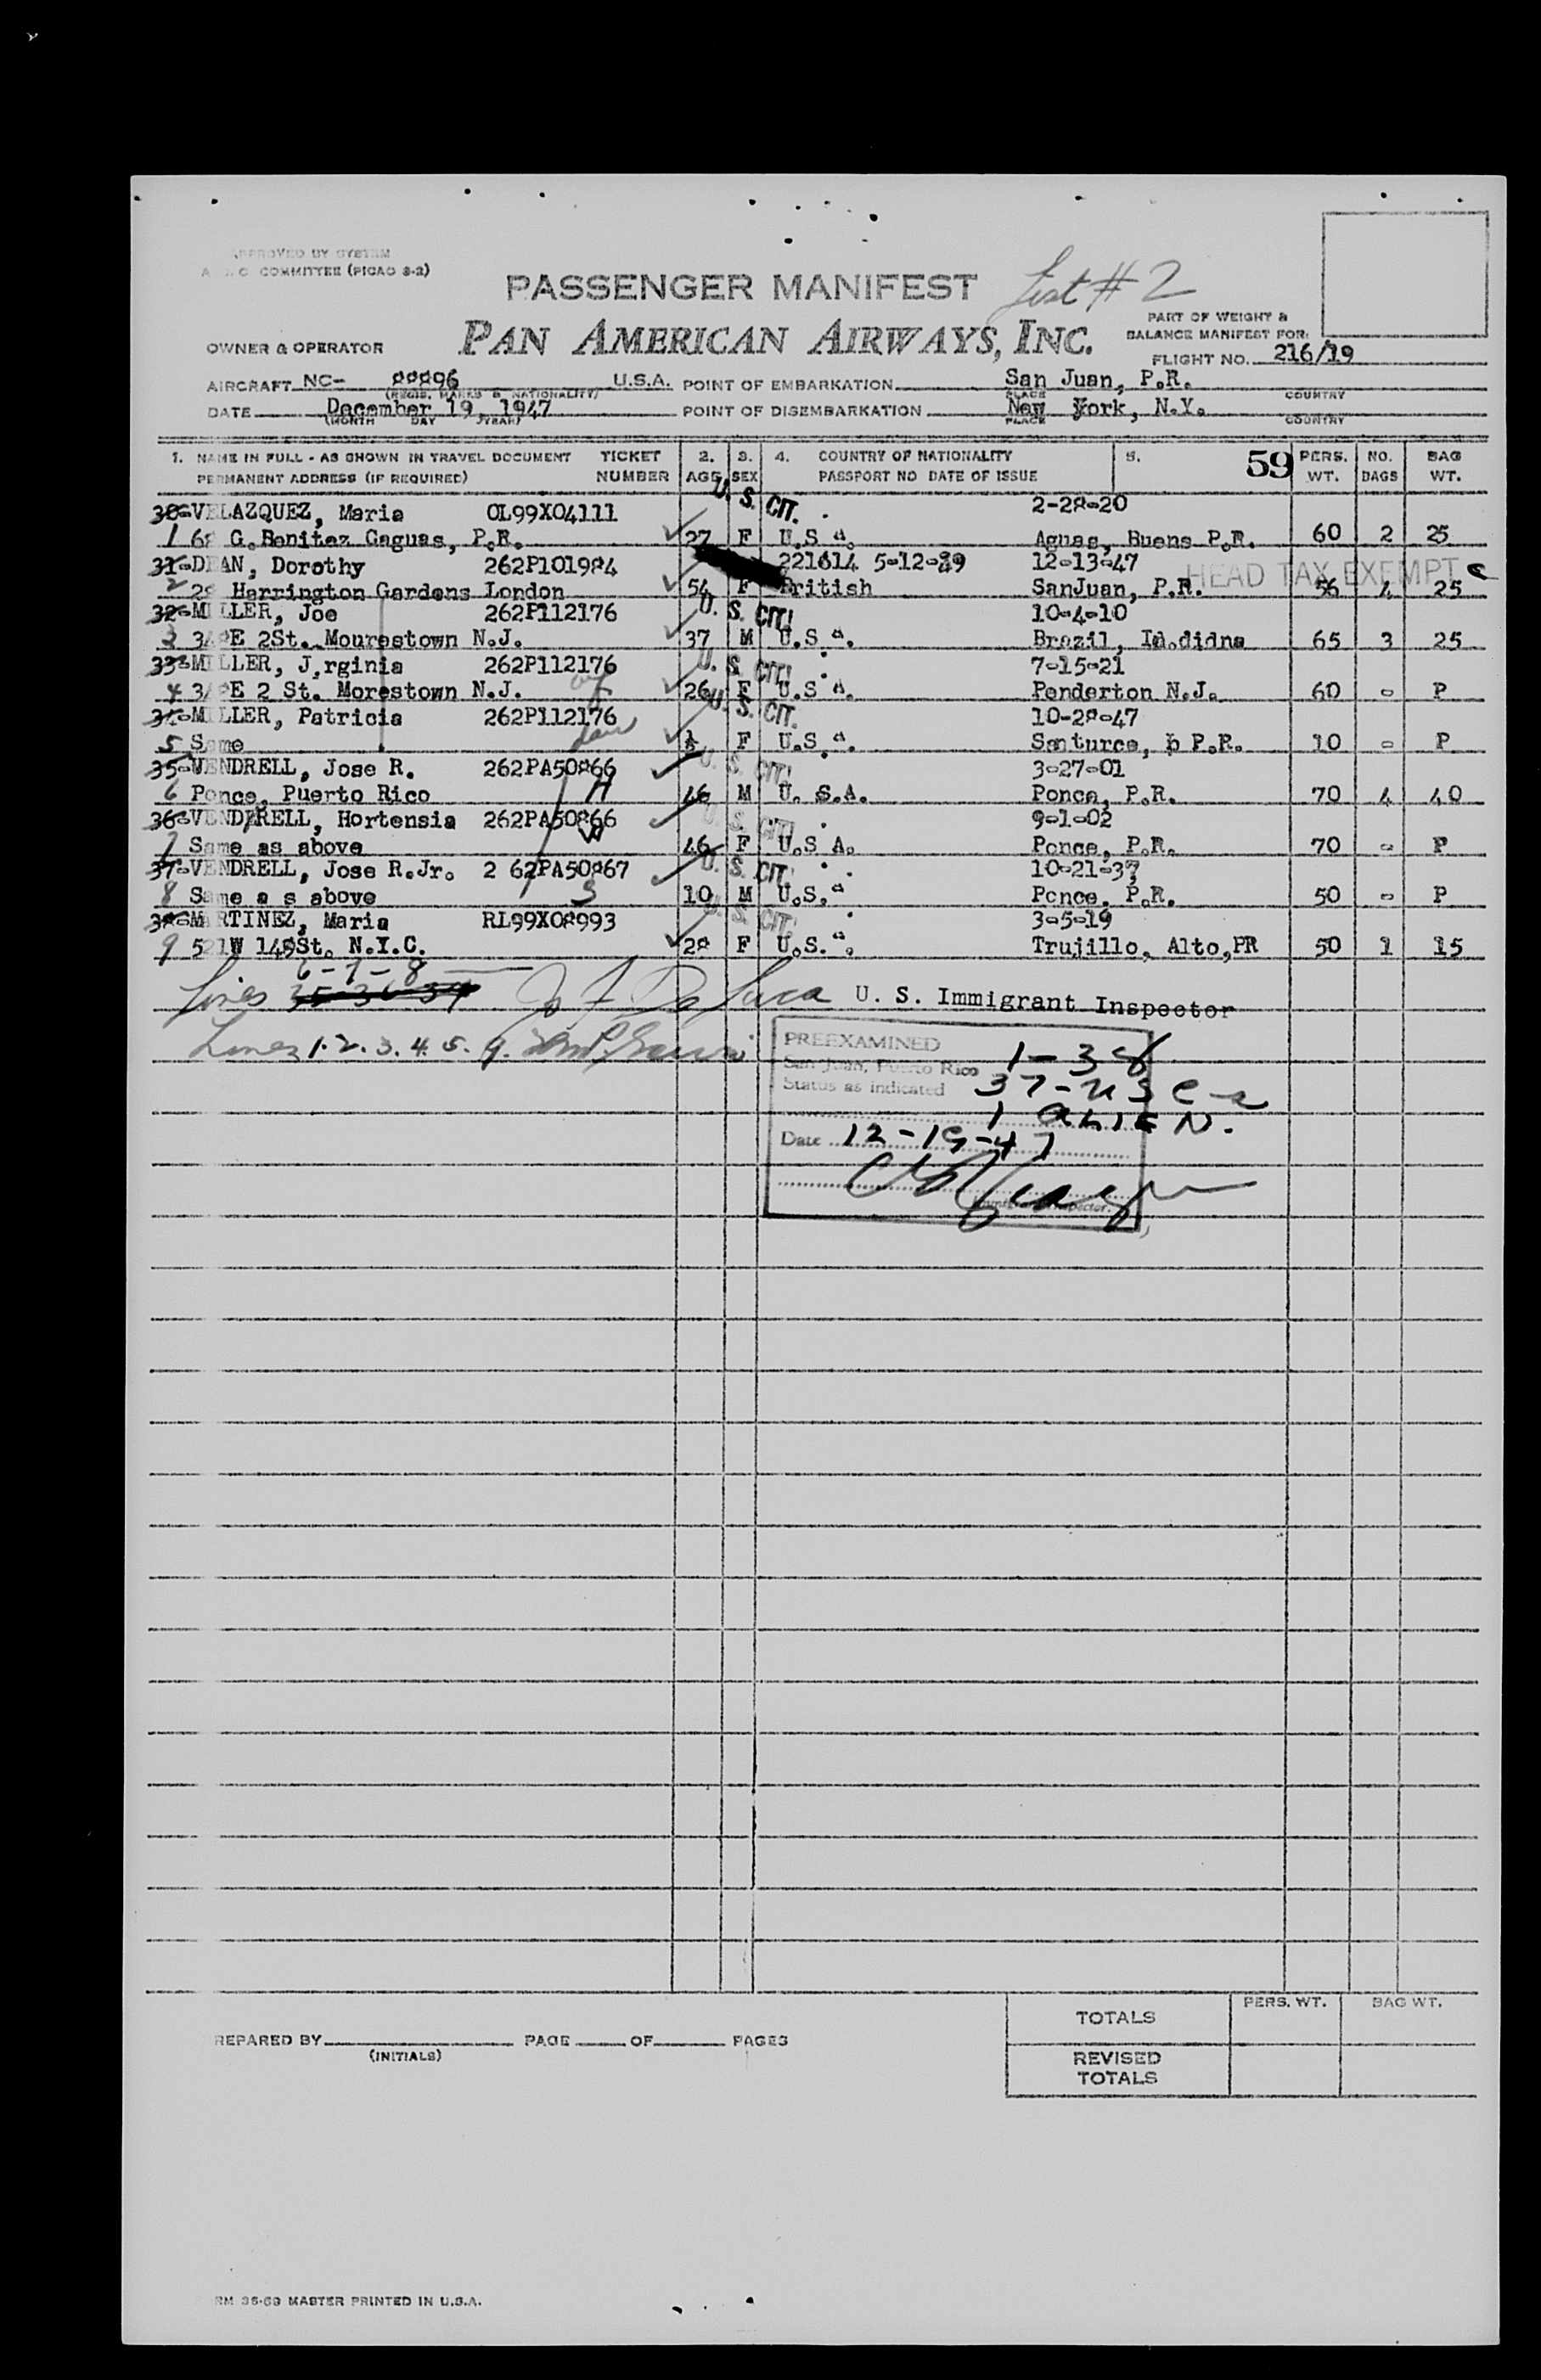 APPROVED BY SYSTEM
COMMITTEE (PICAO S-2)
PASSENGER MANIFEST List # 2
PAN AMERICAN AIRWAYS, INC.
PART OF WEIGHT &
BALANCE MANIFEST FOR:
OWNER & OPERATOR
FLIGHT NO. 216/19
AIRCRAFT NC- 88896 U.S.A. POINT OF EMBARKATION San Juan, P.R.
(REGIS. MARKS & NATIONALITY) PLACE COUNTRY
DATE December 19, 1947 POINT OF DISEMBARKATION New York, N.Y.
(MONTH DAY YEAR) PLACE COUNTRY
1. NAME IN FULL - AS SHOWN IN TRAVEL DOCUMENT TICKET 2. 3. 4. COUNTRY OF NATIONALITY 5. 59 PERS. NO. BAG
PERMANENT ADDRESS (IF REQUIRED) NUMBER AGE SEX PASSPORT NO DATE OF ISSUE WT. BAGS WT.
30-VELAZQUEZ, Maria OL99X04111 U. S. CIT. 2-28-20
1 68 G.Benitez Caguas, P.R. 27 F U.S.A. Aguas, Buens P.R. 60 2 25
31-DEAN, Dorothy 262P101984 221614 5-12-39 12-13-47 HEAD TAX EXEMPT
2 Harrington Gardens London 54 F British SanJuan, P.R. 56 4 25
32-MILLER, Joe 262P112176 U. S. CIT. 10-4-10
3 E 2St. Mourestown N.J. 37 M U.S.A. Brazil, 65 3 25
33-MILLER, J,rginia 262P112176 U. S. CIT. 7-15-21
4 E 2 St. Morestown N.J. 26 F U.S.A. Penderton N.J. 60 - P
34-MILLER, Patricia 262P112176 U. S. CIT. 10-28-47
5 Same F U.S.A. Santurce, P.R. 10 - P
35-VENDRELL, Jose R. 262PA50866 U. S. CIT. 3-27-01
6 Ponce, Puerto Rico H 46 M U. S.A. Ponce, P.R. 70 4 40
36-VENDRELL, Hortensia 262PA50866 U. S. CIT. 9-1-02
7 Same as above W 46 F U.S A. Ponce, P.R. 70 - P
37-VENDRELL, Jose R.Jr. 2 62PA50867 U. S. CIT. 10-21-37
8 Same a s above S 10 M U.S.A. Ponce, P.R. 50 - P
38-MARTINEZ, Maria RL99X08993 U. S. CIT. 3-5-19
9 521W 149St. N.Y.C. 28 F U.S.A. Trujillo, Alto,PR 50 1 15
6-7-8
Lines U. S. Immigrant Inspector
Lines 1. 2. 3. 4. 5. 9.
PREEXAMINED
San Juan, Puerto Rico 1-38
Status as indicated 37-USC-
1 ALIEN.
Date 12-19-47
TOTALS PERS. WT. BAG WT.
REPARED BY PAGE OF PAGES
(INITIALS)
REVISED
TOTALS
RM 36-69 MASTER PRINTED IN U.S.A.